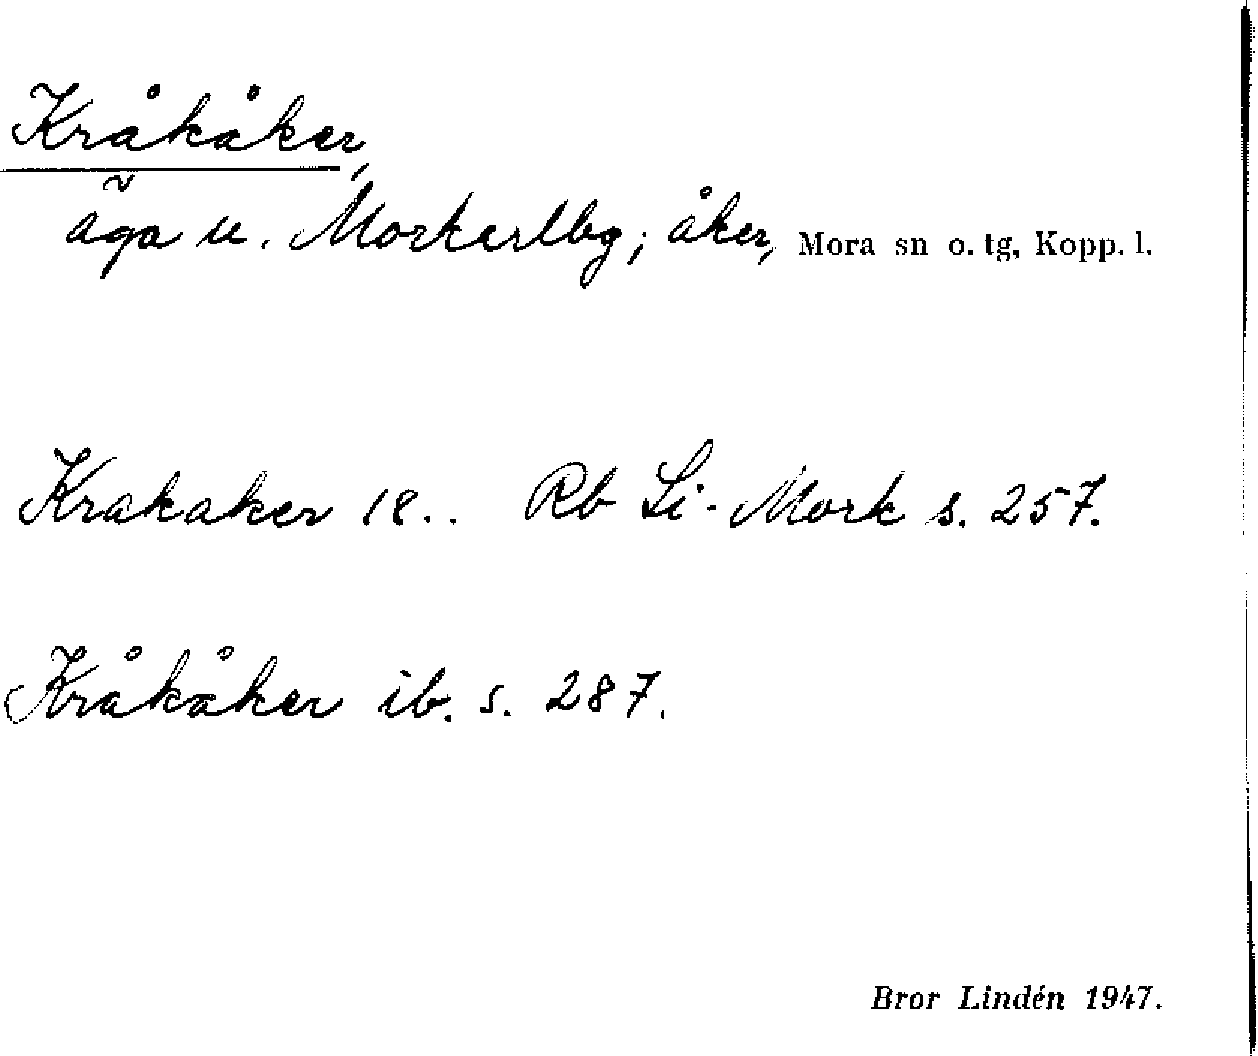 Kråkåker,
äga u. Morkerlbg; åker, Mora sn o. tg, Kopp. l.
Krakaker 18.. Rb Li-Mork s. 257.
Kråkåker ib. s. 287.
Bror Lindén 1947.